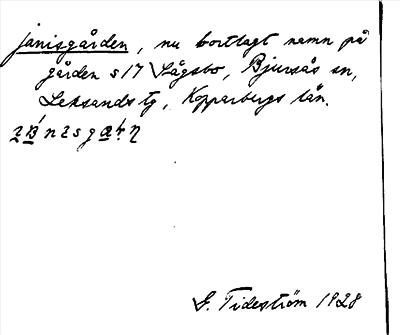 janisgården, nu bortlagt namn på
gården s 17 Sågsbo, Bjursås sn,
Leksands tg, Kopparbergs län.
G. Tideström 1928